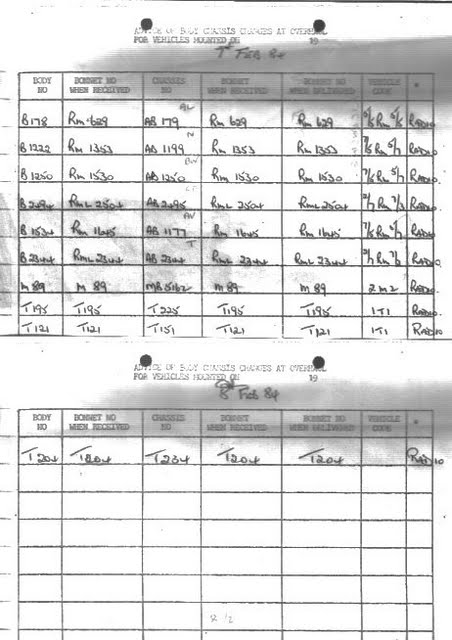 ADVICE OF BODY CHASSIS CHANGES AT OVERHAUL
FOR VEHICLES MOUNTED ON 19
7th Feb 84
BODY NO BONNET NO WHEN RECEIVED CHASSIS NO BONNET BONNET NO WHEN DELIVERED VEHICLE CODE *
AL
B178 Rm 629 AB 179 Rm 629 Rm 629 RADIO
N
B1222 Rm 1353 AB 1199 Rm 1353 Rm 1353 RADIO
BW
B1250 Rm 1530 AB 1250 Rm 1530 Rm 1530 RADIO
B2494 RmL 2504 AB 2495 RmL 2504 RmL 2504 RADIO
AV
B1534 Rm 1645 AB 1177 Rm 1645 Rm 1645 RADIO
T
B2344 RmL 2344 AB 2344 RmL 2344 RmL 2344 RADIO
m 89 m 89 MB5162 m 89 m 89 2 m 2 RADIO
T195 T195 T225 T195 T195 1T1 RADIO
T121 T121 T151 T121 T121 1T1 RADIO
ADVICE OF BODY CHASSIS CHANGES AT OVERHAUL
FOR VEHICLES MOUNTED ON 19
8th Feb 84
BODY NO BONNET NO WHEN RECEIVED CHASSIS NO BONNET BONNET NO WHEN DELIVERED VEHICLE CODE *
T204 T204 T234 T204 T204 RADIO